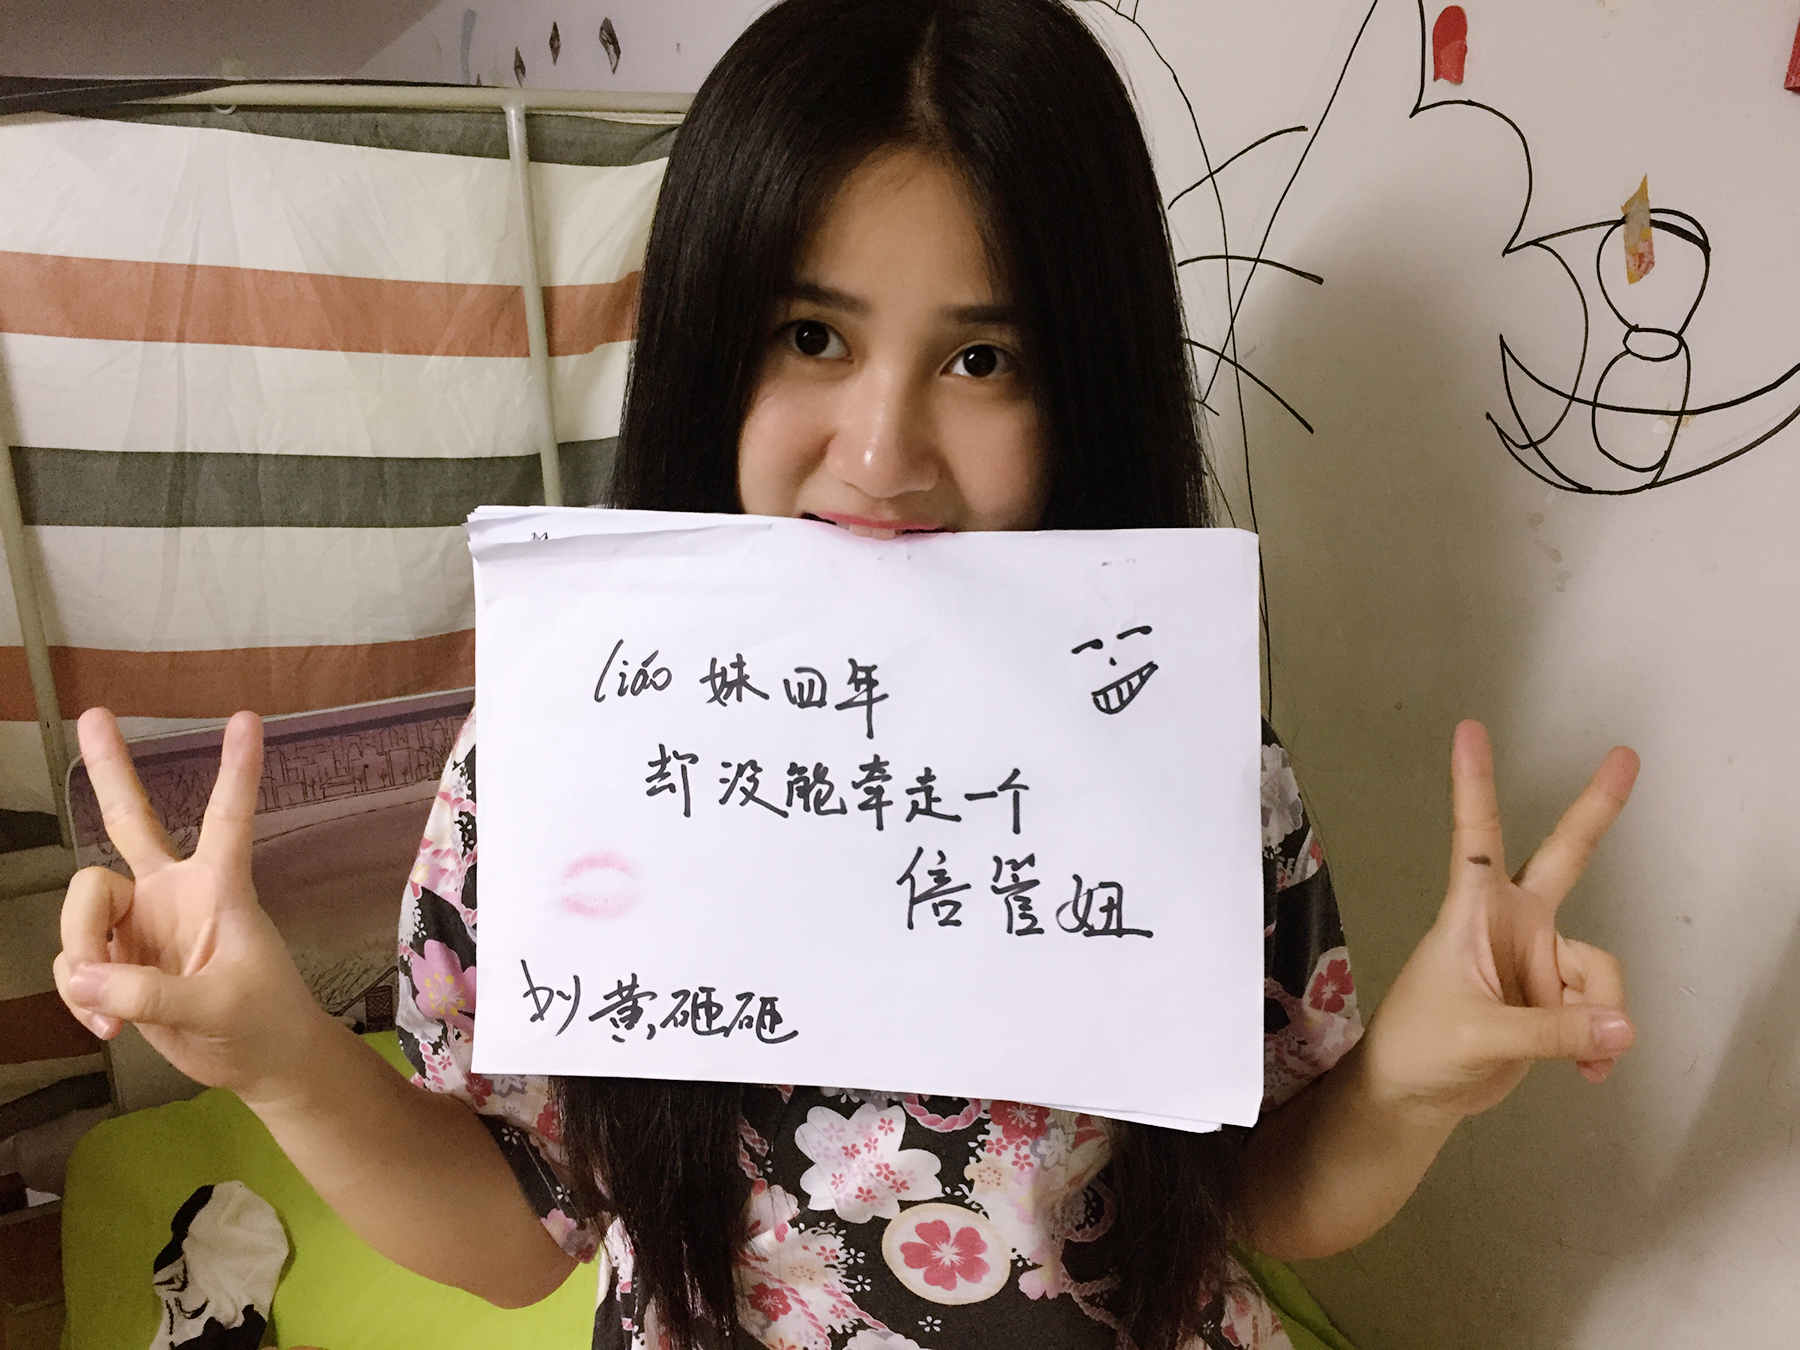 liáo妹四年
却没能牵走一个
信管妞
刘黄砸砸